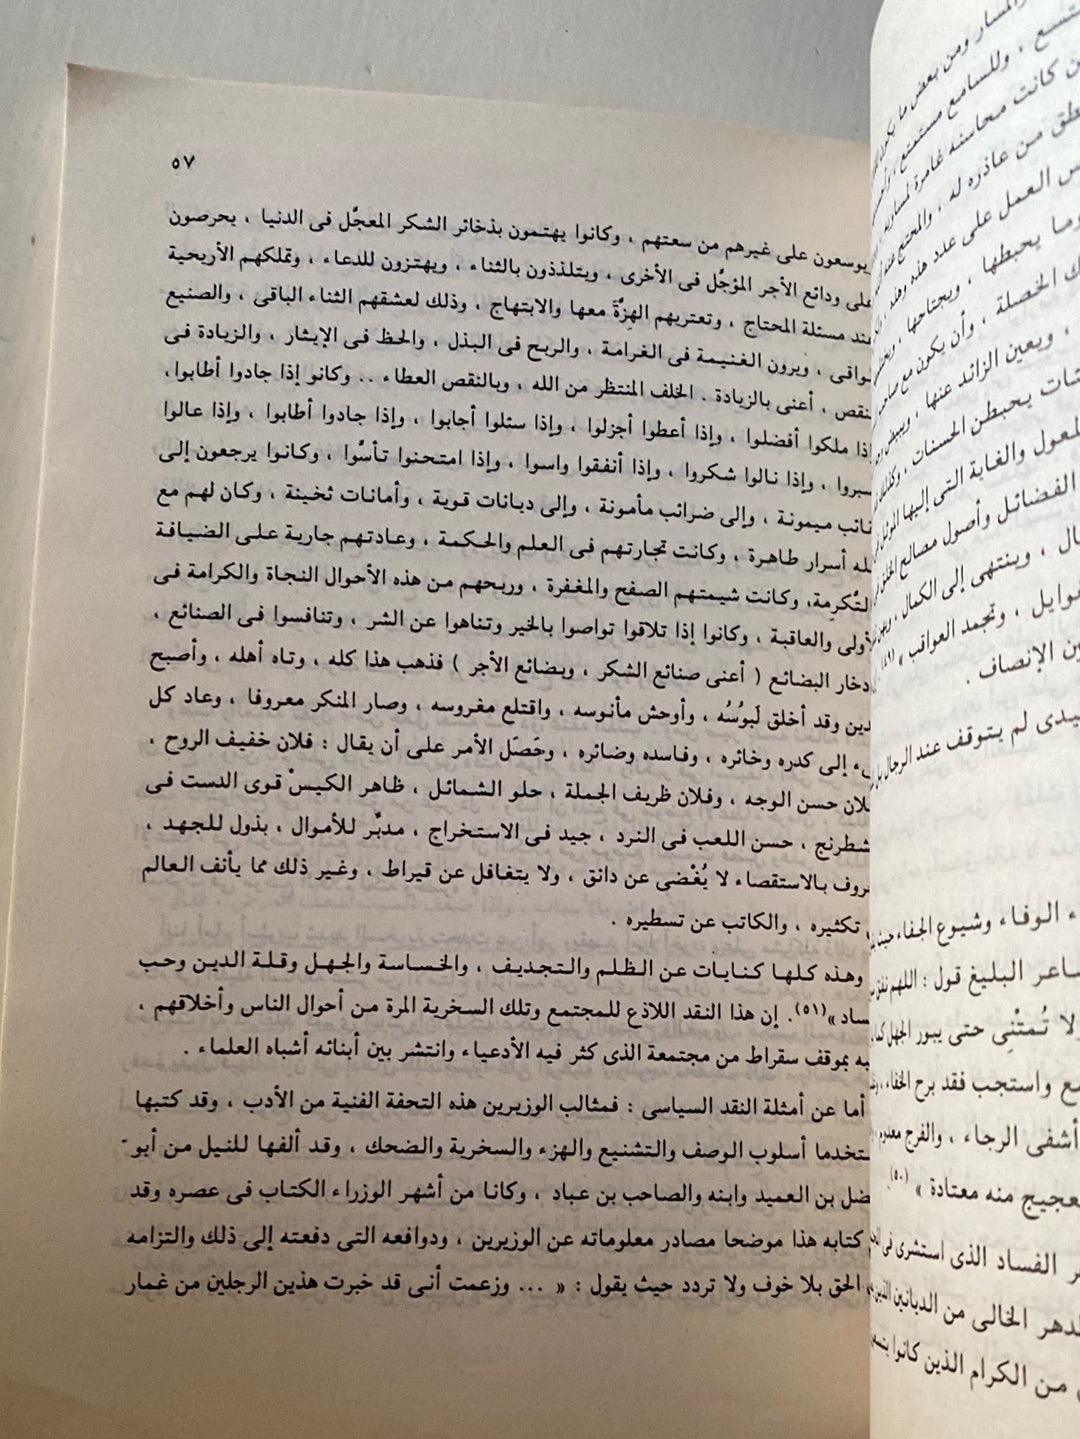 ٥٧
يوسعون على غيرهم من سعتهم ، وكانوا يهتمون بذخائر الشكر المعجَّل فى الدنيا ، يحرصون
ودائع الأجر المؤجَّل فى الأخرى ، ويتلذذون بالثناء ، ويهتزون للدعاء ، وتملكهم الأريحية
مسئلة المحتاج ، وتعتريهم الهزَّةَ معها والابتهاج ، وذلك لعشقهم الثناء الباقى ، والصنيع
، ويرون الغنيمة فى الغرامة ، والربح فى البذل ، والحظ فى الإيثار ، والزيادة فى
، أعنى بالزيادة . الخلف المنتظر من الله ، وبالنقص العطاء .. وكانو إذا جادوا أطابوا،
ملكوا أفضلوا ، وإذا أعطوا أجزلوا ، وإذا سئلوا أجابوا ، وإذا جادوا أطابوا ، وإذا عالوا
، وإذا نالوا شكروا ، وإذا أنفقوا واسوا ، وإذا امتحنوا تأسَّوا ، وكانوا يرجعون إلى
ميمونة ، وإلى ضرائب مأمونة ، وإلى ديانات قوية ، وأمانات ثخينة ، وكان لهم مع
أسرار طاهرة ، وكانت تجارتهم فى العلم والحكمة ، وعادتهم جارية على الضيافة
، وكانت شيمتهم الصفح والمغفرة ، وربحهم من هذه الأحوال النجاة والكرامة فى
والعاقبة ، وكانوا إذا تلاقوا تواصوا بالخير وتناهوا عن الشر ، وتنافسوا فى الصنائع ،
البضائع ( أعنى صنائع الشكر ، وبضائع الأجر ) فذهب هذا كله ، وتاه أهله ، وأصبح
وقد أخلق لَبوُسُه ، وأوحش مأنوسه ، واقتلع مغروسه ، وصار المنكر معروفا ، وعاد كل
إلى كدره وخائره ، وفاسده وضائره ، وحَصَل الأمر على أن يقال : فلان خفيف الروح ،
حسن الوجه ، وفلان ظريف الجملة ، حلو الشمائل ، ظاهر الكيسْ قوى الدست فى
، حسن اللعب فى النرد ، جيد فى الاستخراج ، مدبِّر للأموال ، بذول للجهد ،
بالاستقصاء لا يُغْضى عن دانق ، ولا يتغافل عن قيراط ، وغير ذلك مما يأنف العالم
تكثيره ، والكاتب عن تسطيره .
وهذه كلها كنايات عن الظلم والتجديف ، والخساسة والجهل وقلة الدين وحب
»(٥١). إن هذا النقد اللاذع للمجتمع وتلك السخرية المرة من أحوال الناس وأخلاقهم ،
بموقف سقراط من مجتمعة الذى كثر فيه الأدعياء وانتشر بين أبنائه أشباه العلماء .
أما عن أمثلة النقد السياسى : فمثالب الوزيرين هذه التحفة الفنية من الأدب ، وقد كتبها
أسلوب الوصف والتشنيع والهزء والسخرية والضحك ، وقد ألفها للنيل من أبو
بن العميد وابنه والصاحب بن عباد ، وكانا من أشهر الوزراء الكتاب فى عصره وقد
كتابه هذا موضحا مصادر معلوماته عن الوزيرين ، ودوافعه التى دفعته إلى ذلك والتزامه
الحق بلا خوف ولا تردد حيث يقول : « ... وزعمت أنى قد خبرت هذين الرجلين من غمار
ومن بعض ما
، وللسامع مستمتع ،
كانت محاسنه غامرة
من عاذره له ،
العمل على عدد هذه
وما يحبطها ، ويجتاحها ،
الخصلة ، وأن يكون مع
، ويعين الزائد عنها ،
يحبطن الحسنات ،
والغاية التى إليها
الفضائل وأصول مصالح
، وينتهى إلى الكمال ،
، وتحمد العواقب » (٤٩)
الإنصاف .
لم يتوقف عند الرجال
الوفاء وشيوع الجفاء
البليغ قول : اللهم
لا تُمتْنِى حتى يبور الجهل
واستجب فقد برح الخفاء
أشفى الرجاء ، والفرج
منه معتادة » (٥٠).
الفساد الذى استشرى فى
الخالى من الديانين
من الكرام الذين كانوا